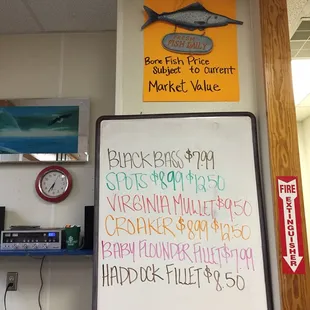 FISH DAILY
Bone Fish Price
Subject to current
Market Value
BLACK BASS $7.99
SPOTS $8.99 $12.50
VIRGINIA MULLET $9.50
CROAKER $8.99 $12.50
BABY FLOUNDER FILLET $7.99
HADDOCK FILLET $8.50
FIRE
EXTINGUISHER